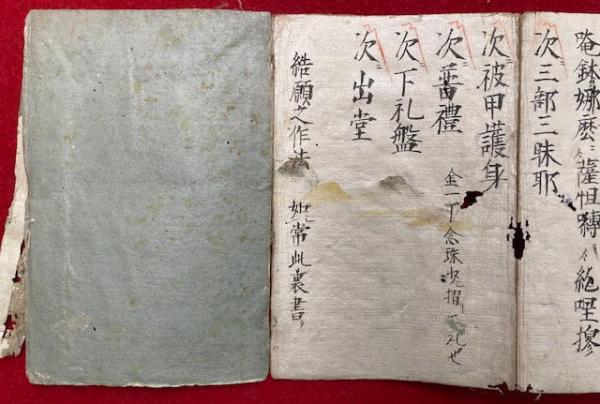 唵鉢娜麼ニ薩怛嚩ハ紇哩摻
次三部三昧耶
次被甲護身
次普禮 金一丁念珠少摺一礼也
次下礼盤
次出堂
結願之作法 如常此裏書